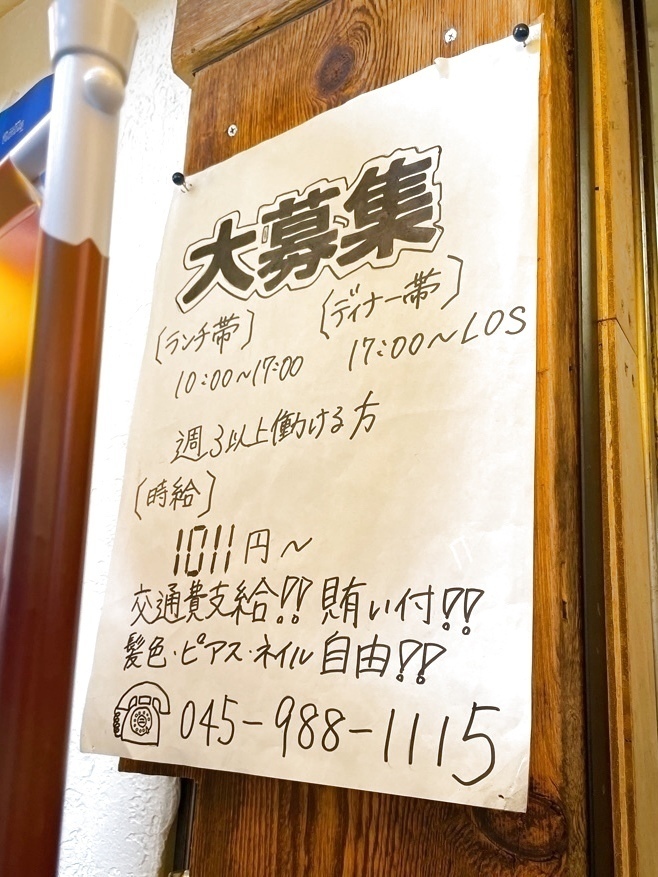 大募集
[ランチ帯] [ディナー帯]
10:00~17:00 17:00~LOS
週3以上働ける方
[時給]
1011円~
交通費支給!! 賄い付!!
髪色・ピアス・ネイル自由!!
045-988-1115